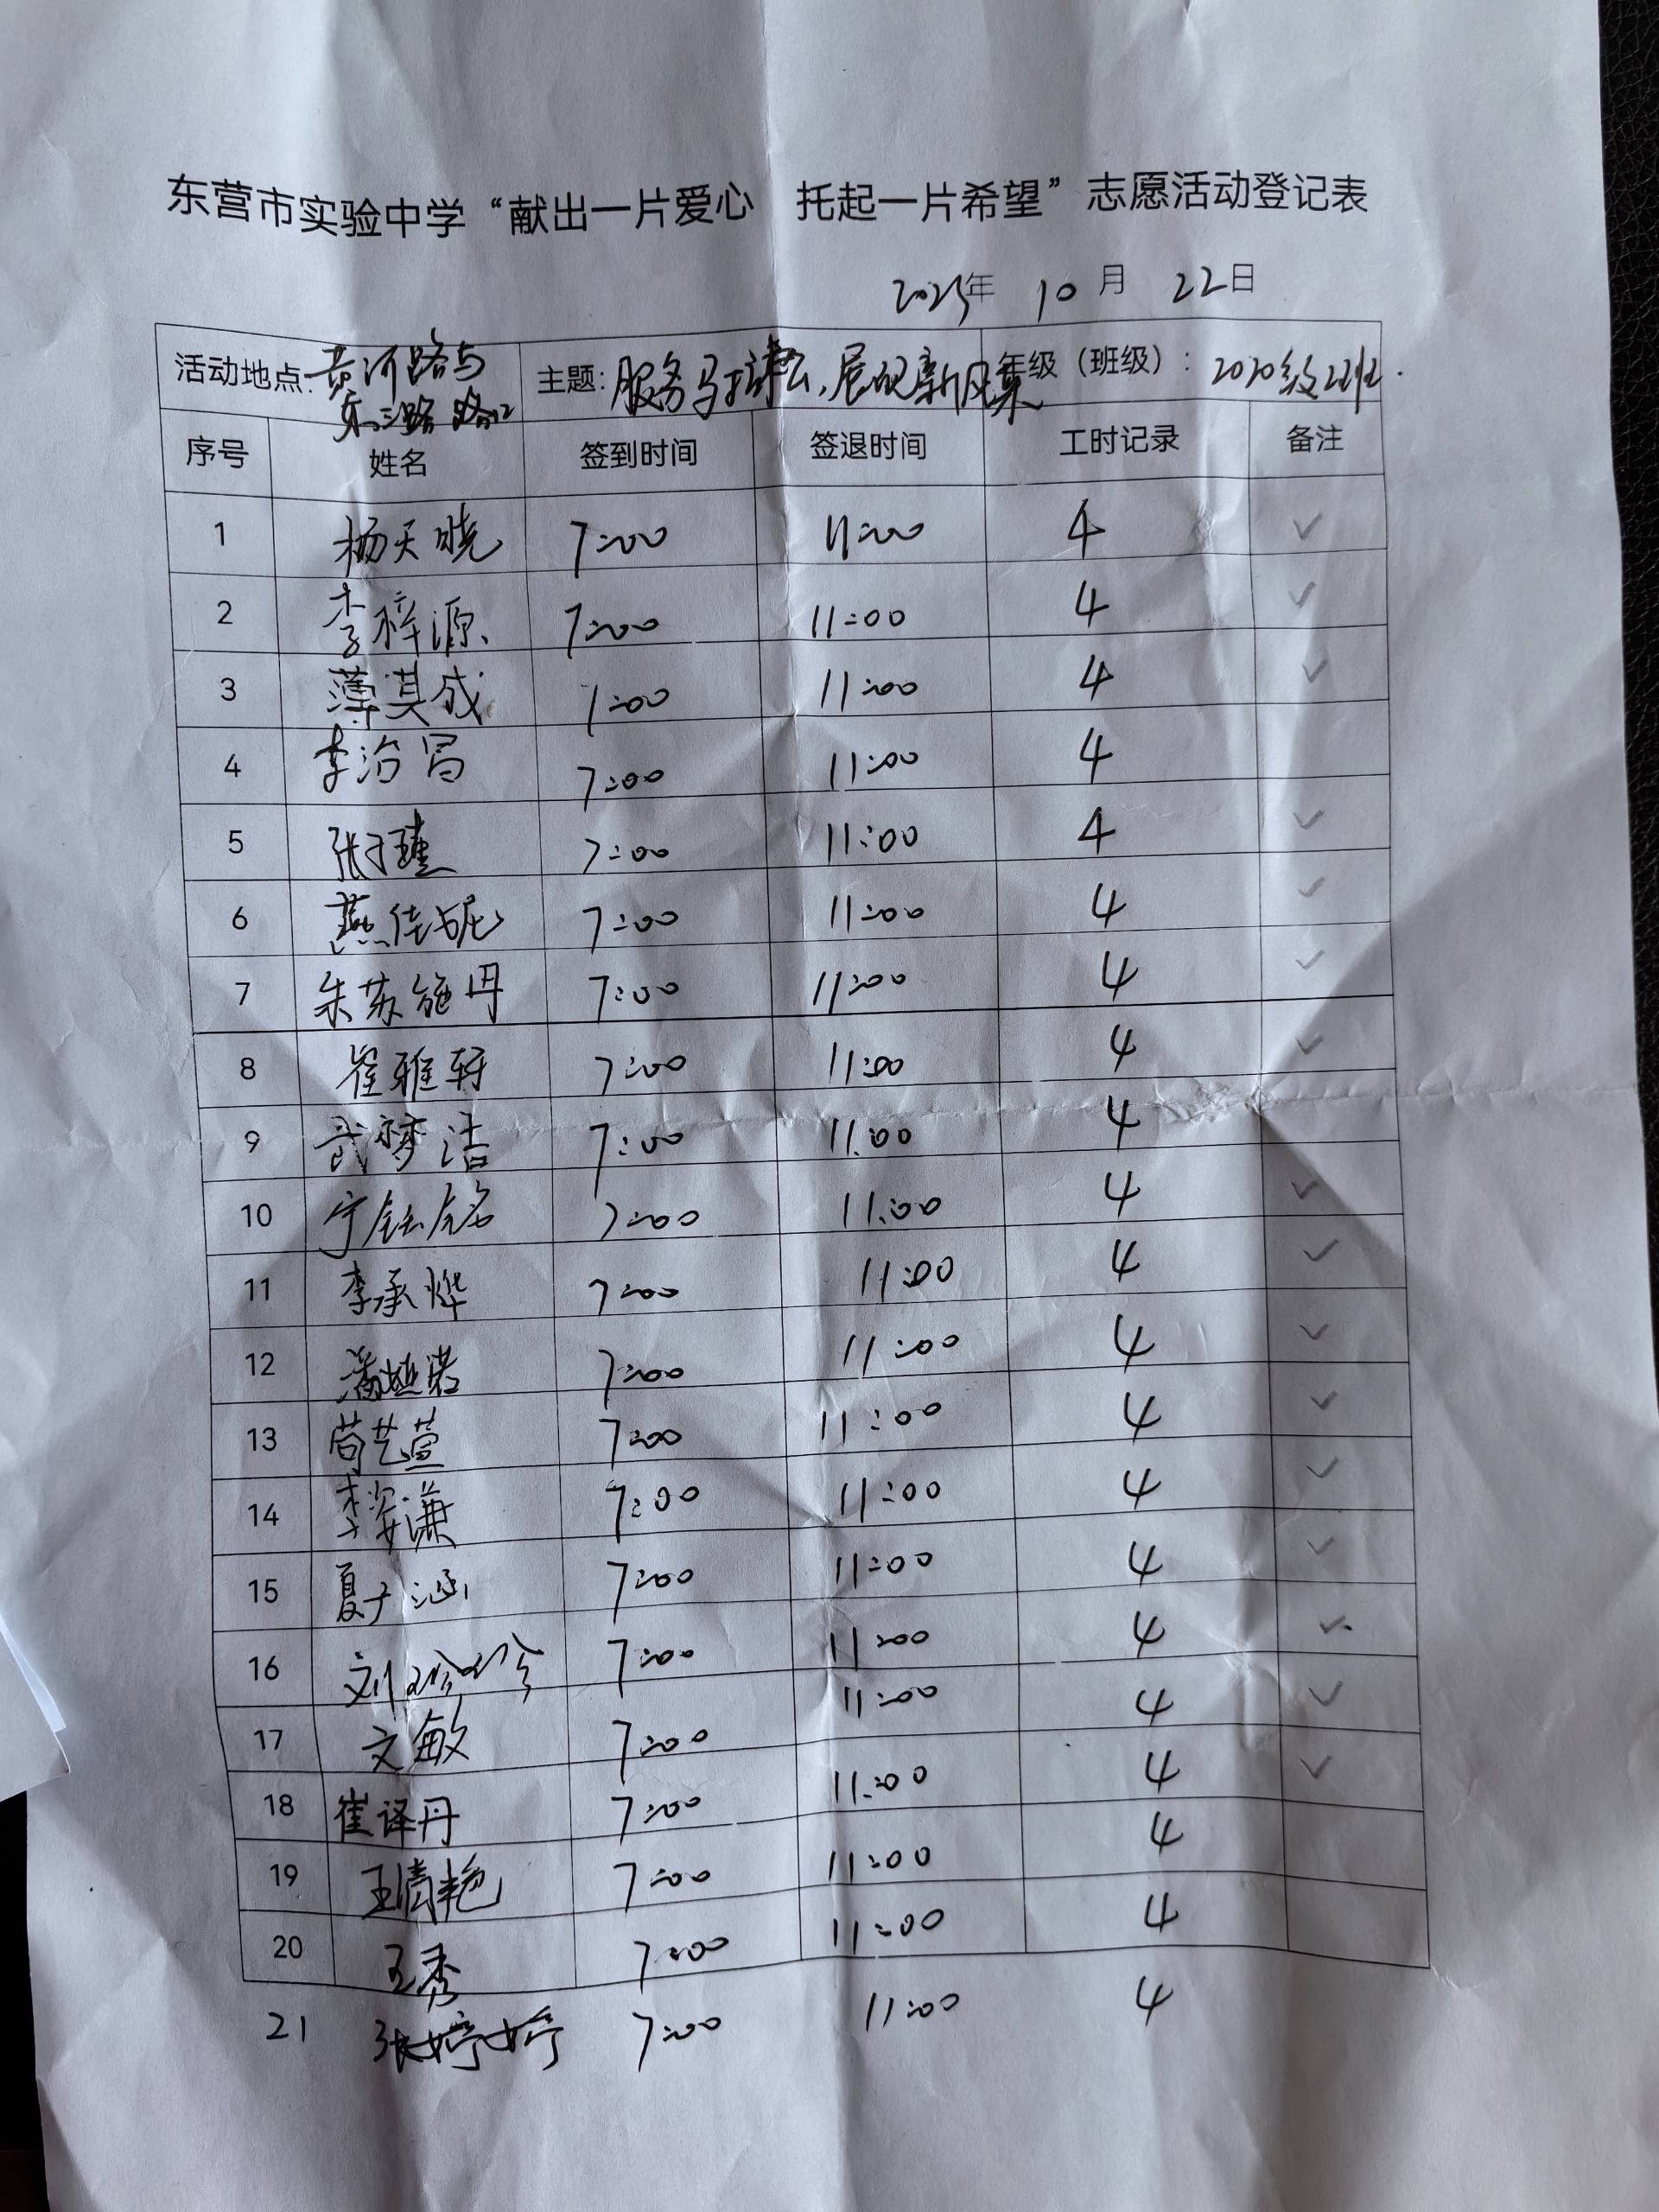 东营市实验中学“献出一片爱心 托起一片希望”志愿活动登记表
年 10 月 22日
活动地点: 黄河路与东三路路口 主题: 服务马拉松, 展现新风采 年级（班级）: 2020级22班.
序号 姓名 签到时间 签退时间 工时记录 备注
1 杨天晓 7:00 11:00 4 ✓
2 李梓源 7:00 11:00 4 ✓
3 薄其成 7:00 11:00 4 ✓
4 李治 7:00 11:00 4
5 张子瑾 7:00 11:00 4 ✓
6 燕佳妮 7:00 11:00 4 ✓
7 朱苏施丹 7:00 11:00 4 ✓
8 崔雅轩 7:00 11:00 4 ✓
9 武梦洁 7:00 11:00 4
10 宁钰铭 7:00 11:00 4 ✓
11 李承烨 7:00 11:00 4 ✓
12 潘 7:00 11:00 4 ✓
13 苟艺萱 7:00 11:00 4 ✓
14 李姿谦 7:00 11:00 4 ✓
15 夏子涵 7:00 11:00 4 ✓
16 刘 7:00 11:00 4 ✓
17 文敏 7:00 11:00 4 ✓
18 崔译丹 7:00 11:00 4 ✓
19 王倩艳 7:00 11:00 4
20 王秀 7:00 11:00 4
21 张婷婷 7:00 11:00 4